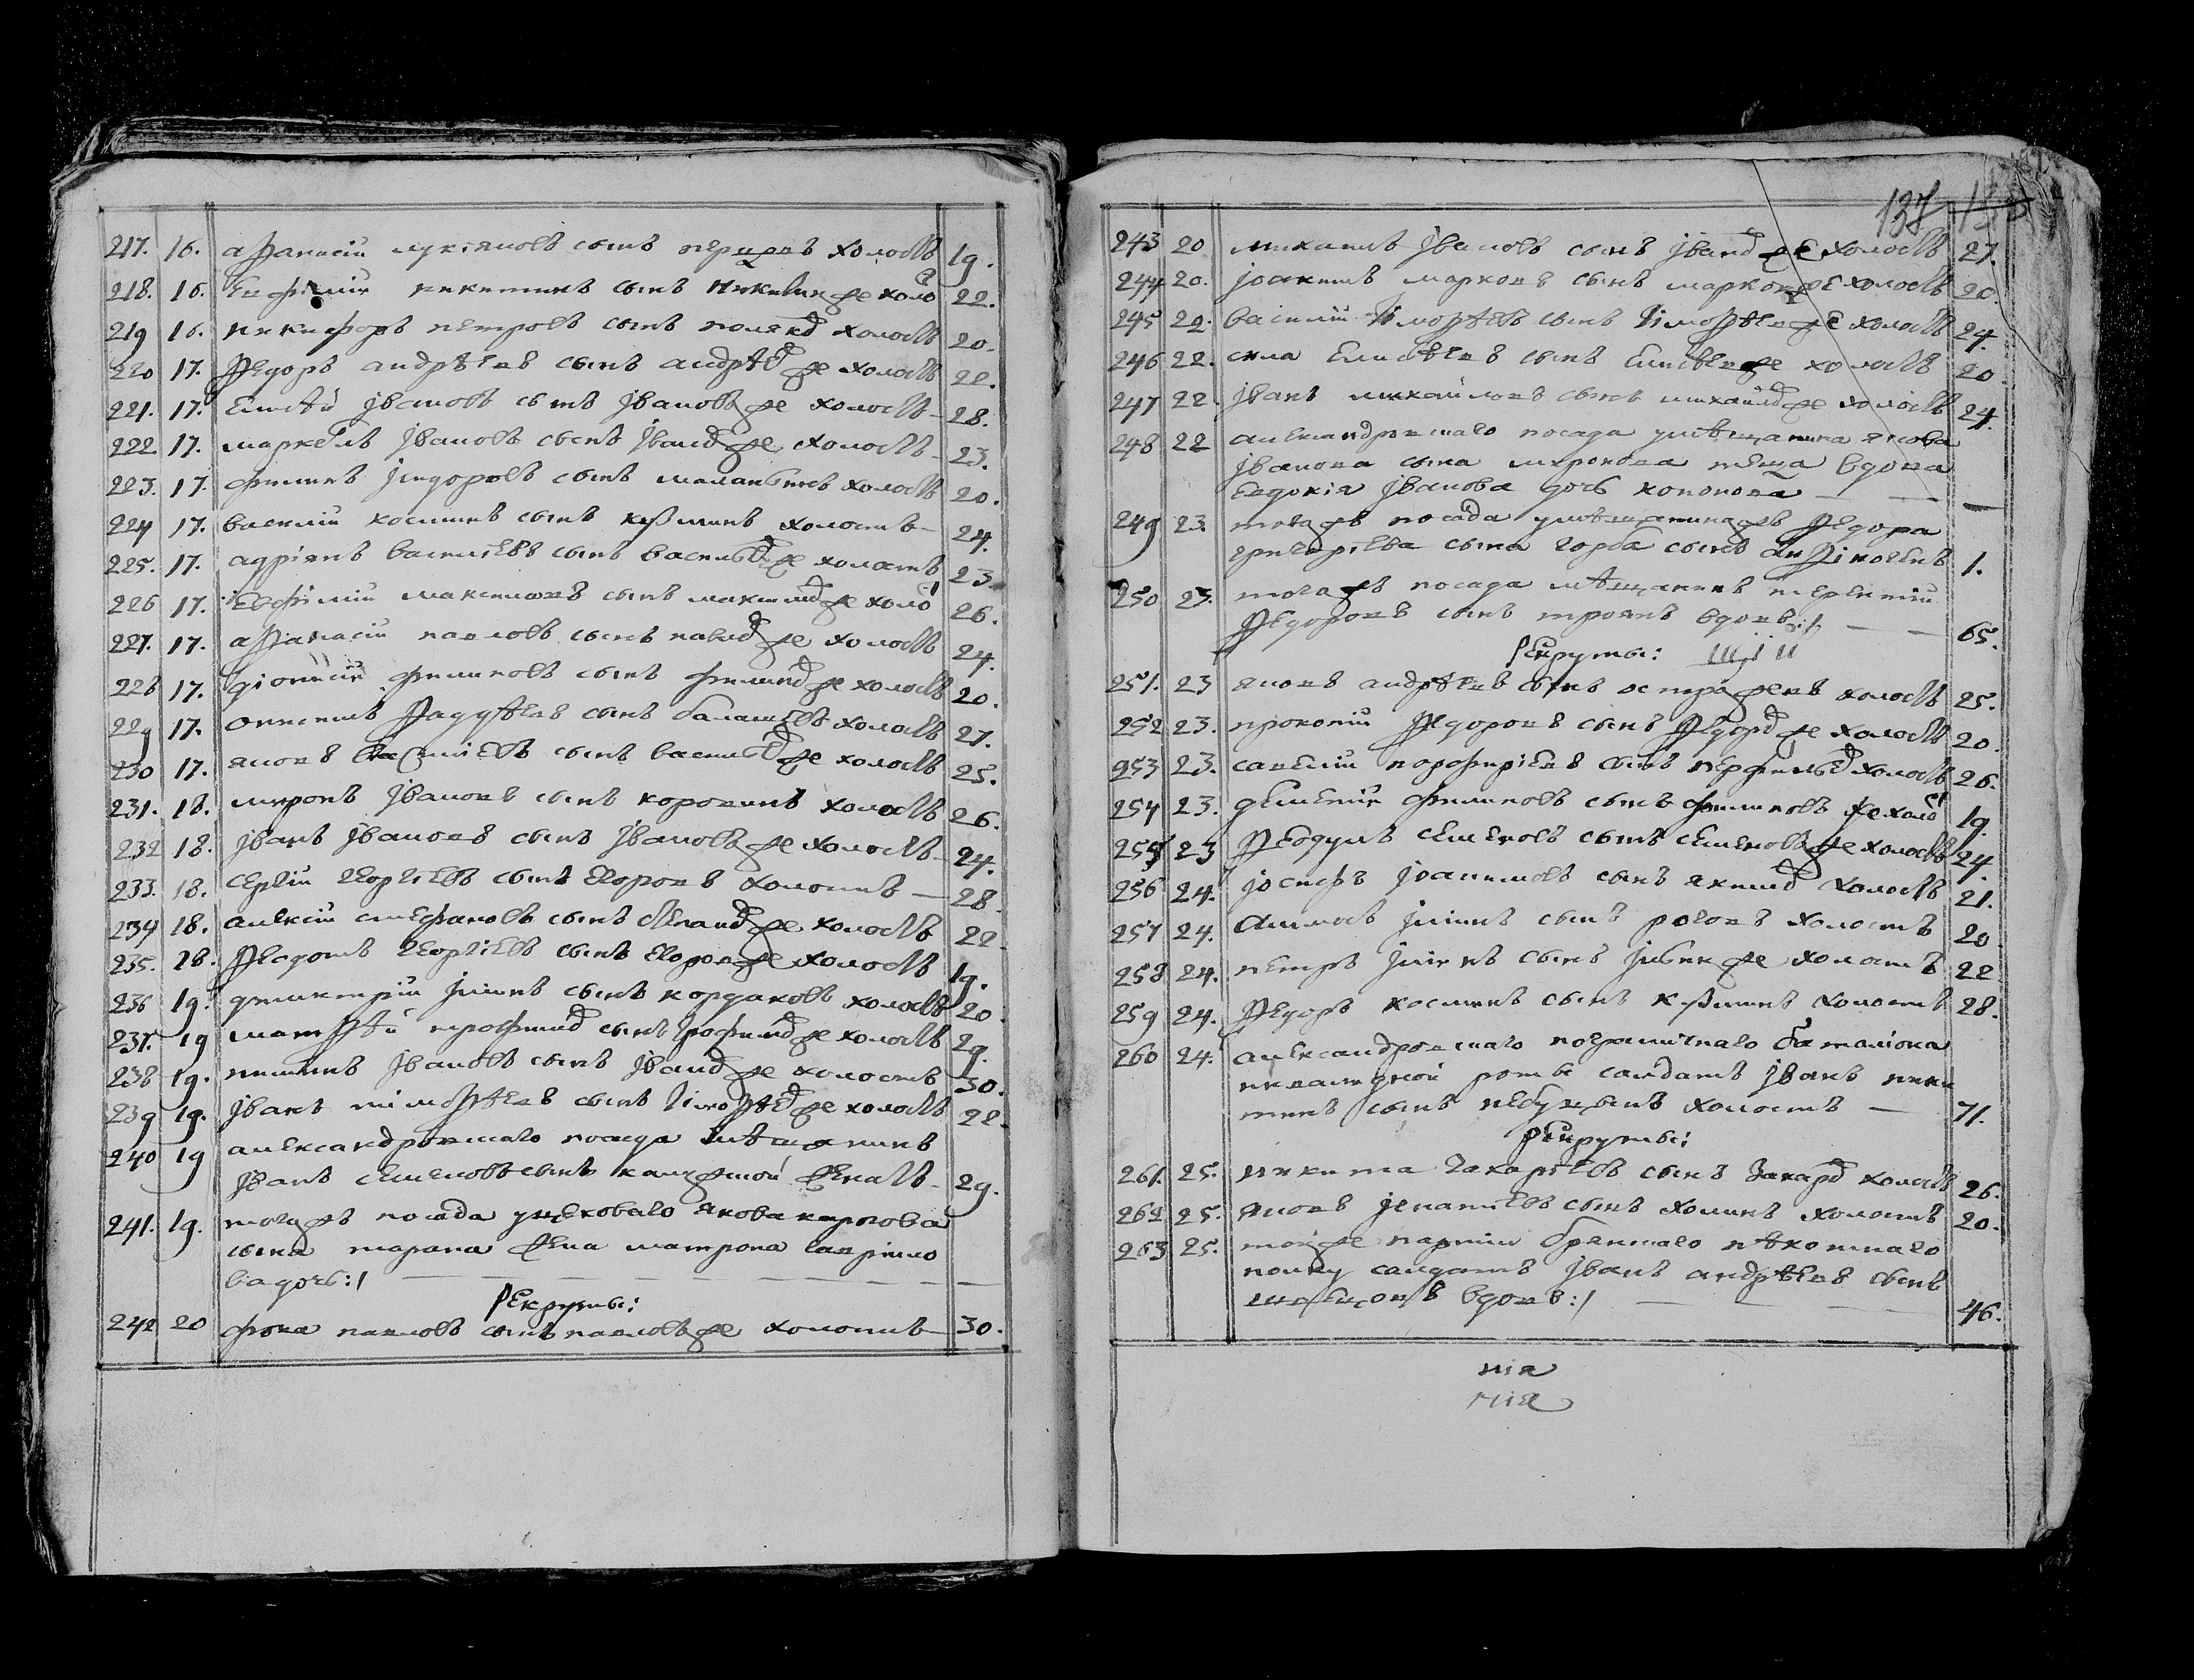 217. 16. аѳанасій лукіановъ сынъ перцовъ холостъ 19.
218. 16. Евфимій никитинъ сынъ Никитин же холо 22.
219 16. никифоръ петровъ сынъ холостъ 20.
220 17. Ѳедоръ андрѣевъ сынъ андрѣе же холостъ 22.
221. 17. Елисѣй Iвановъ сынъ Iвановъ же холостъ 28.
222 17. маркеллъ Iвановъ сынъ Iвано же холостъ 23.
223. 17. филипъ сынъ холостъ 20.
224 17. василій косминъ сынъ кузминъ холостъ 24.
225. 17. адріанъ василіевъ сынъ василье же холостъ 23.
226 17. Евфимій максимовъ сынъ максимо же холо 26.
227. 17. аѳанасій павловъ сынъ павло же холостъ 24.
228 17. діонисій филиповъ сынъ филипо же холостъ 20.
229 17. онисимъ Ѳаддѣевъ сынъ балашевъ холостъ 27.
230 17. яковъ василіевъ сынъ василье же холостъ 25.
231. 18. миронъ Iвановъ сынъ коровинъ холостъ 26.
232 18. Iванъ Iвановъ сынъ Iвановъ же холостъ 24.
233. 18. сергій георгіевъ сынъ егоровъ холостъ 28.
234 18. алексій стефановъ сынъ степано же холостъ 22.
235. 18. Ѳедотъ георгіевъ сынъ егоров же холостъ 19.
236 19. димитрій Iлiинъ сынъ кордаковъ холостъ 20.
237. 19 матѳѣй трофимо сынъ трофимо же холостъ 29.
238 19. пименъ Iвановъ сынъ Iвано же холостъ 30.
239 19. Iванъ тимоѳѣевъ сынъ тимоѳѣе же холостъ 22.
240 19 александровскаго посада мѣщанинъ
Iванъ семеновъ сынъ женатъ 29.
241. 19. тогожъ посада якова карпова
сына тарана жена матрона гаврило
ва дочь:/
Рекруты:
242 20 фока павловъ сынъ павловъ же холостъ 30.
137
243 20 михаилъ Iвановъ сынъ Iвано же холостъ 27.
244 20. Iоакимъ марковъ сынъ марков же холостъ 20.
245 22. василій тимоѳѣевъ сынъ тимоѳѣев же холостъ 24.
246 22. сила Елисѣевъ сынъ Елисѣев же холостъ 20
247 22 Iванъ михайловъ сынъ михайло же холостъ 24.
248 22 александровскаго посада умѣщанина якова
Iванова сына миронова теща вдова
Евдокія Iванова дочь кононова
249 23. тогожъ посада умѣщанина жъ Ѳедора
григоріева сына горба сынъ 1.
250 23. тогожъ посада мѣщанинъ терентій
Ѳедоровъ сынъ троянъ вдовъ:/ 65.
Рекруты:
251. 23 яковъ андрѣевъ сынъ холостъ 25.
252 23. прокопій Ѳедоровъ сынъ Ѳедоро же холостъ 20.
253 23. савелій порфиріевъ сынъ перфилье холостъ 26.
254 23. дементій филиповъ сынъ филиповъ же холо 19.
255 23 Ѳеодулъ семеновъ сынъ семеновъ же холостъ 24.
256 24. Iосифъ Iоакимовъ сынъ якимо холостъ 21.
257 24. Iлiинъ сынъ роговъ холостъ 20
258 24. петръ Iлiинъ сынъ Iльин же холостъ 22
259 24. Ѳедоръ косминъ сынъ кузминъ холостъ 28.
260 24. александровскаго пограничнаго баталіона
инвалидной роты салдатъ Iванъ ники
тинъ сынъ холостъ 71.
Рекруты:
261. 25. никита захаріевъ сынъ захаро холостъ 26.
262 25. яковъ Iгнатіевъ сынъ холинъ холостъ 20.
263 25. тойже партіи брянскаго пѣхотнаго
полку салдатъ Iванъ андрѣевъ сынъ
вдовъ:/ 46.
нія
нія